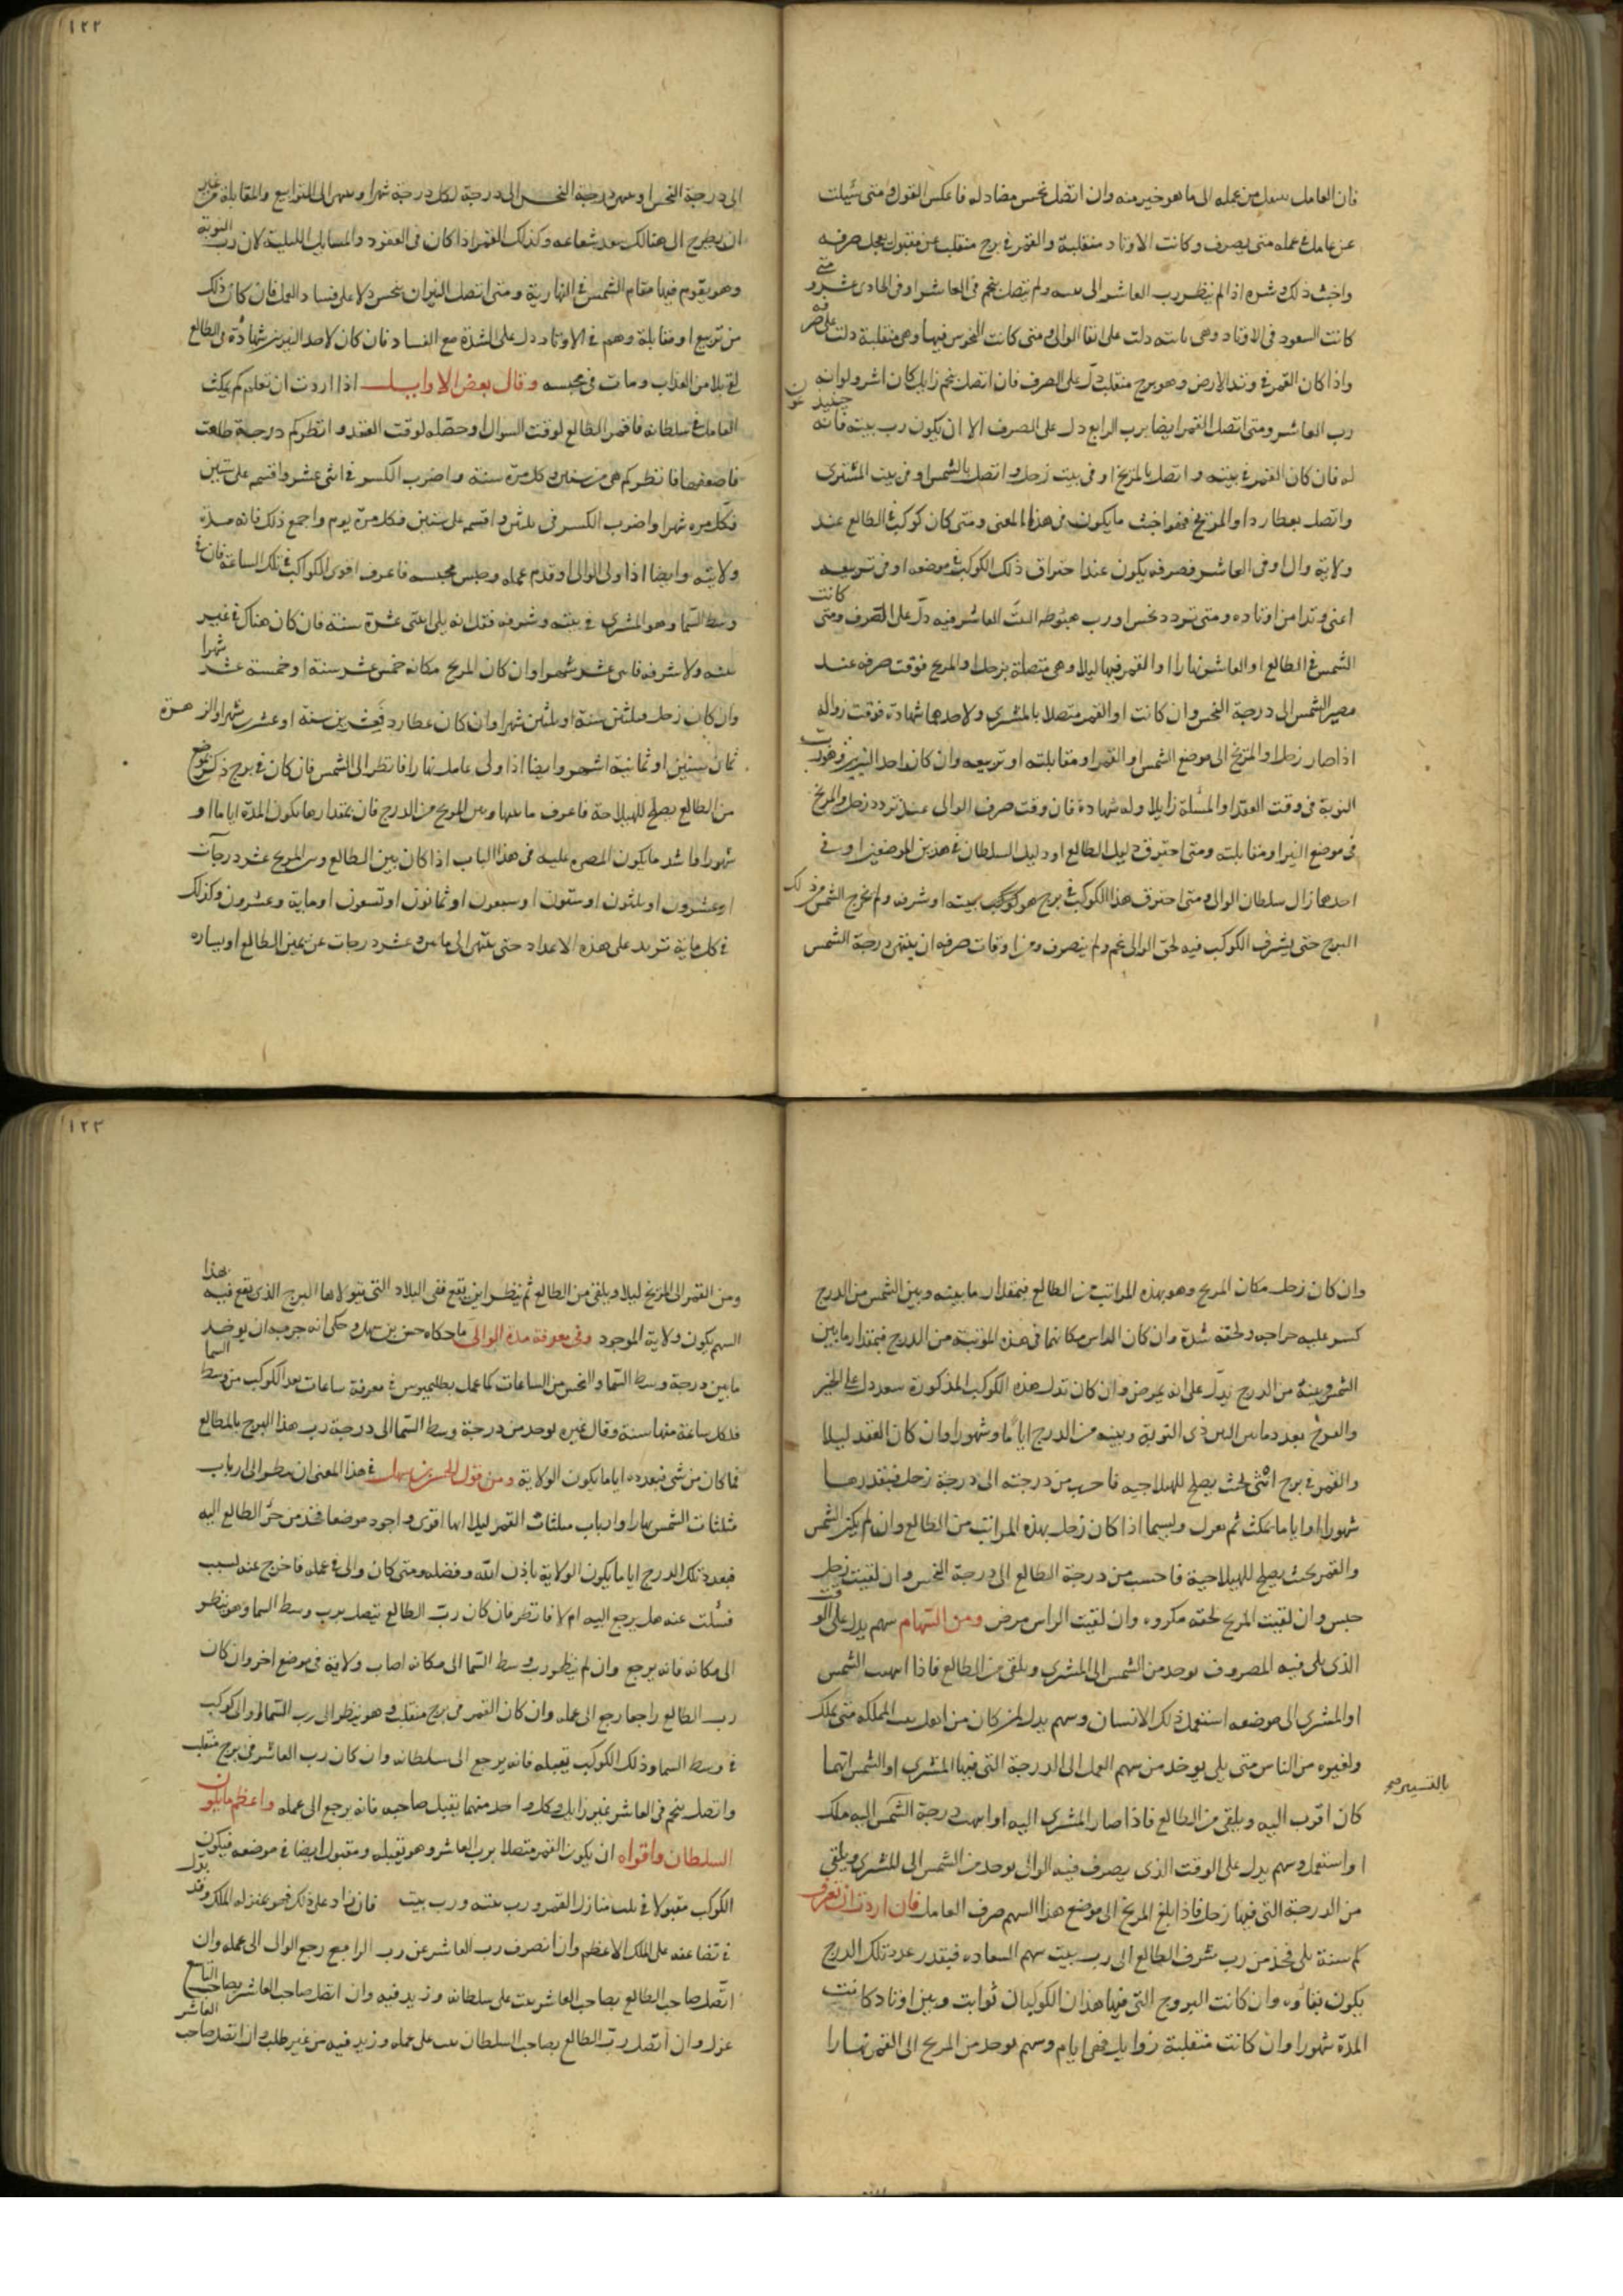 فان العامل ينقل من عمله الى ما هو خير منه وان اتصل بنحس مضاد له فاعكس القول ومتى سُيلت
عن عامل فى عمله متى يصرف وكانت الاوتاد منقلبة والقمر فى برج منقلب غير مقبول يعجل صرفه
واخبث ذلك وشره اذا لم ينظر رب العاشر الى بيته ولم يتصل بنجم فى العاشر او فى الحادى عشر ومتى
كانت السعود فى الاوتاد وهى ثابته دلت على بقا الوالى ومتى كانت النحوس فيها وهى منقلبة دلت على صرفه
واذا كان القمر فى وتد الارض وهو برج منقلب دل على الصرف فان اتصل بنجم زايل كان اشر ولو انه
رب العاشر ومتى اتصل القمر ايضا برب الرابع دل على الصرف الا ان يكون رب بيته فانه حينيذ عون
له فان كان القمر فى بيته واتصل بالمريخ او فى بيت زحل واتصل بالشمس او فى بيت المشترى
واتصل بعطارد او المريخ فهو اخبث ما يكون فى هذا المعنى ومتى كان كوكب الطالع عند
ولاية وال او فى العاشر فصرفه يكون عند احتراق ذلك الكوكب فى موضعه او فى تربيعه
اعنى وتدا من اوتاده ومتى تردد نحس او رب هبوطه البيت العاشر فيه دلّ على الصرف ومتى كانت
الشمس فى الطالع او العاشر نهارا او القمر فيها ليلا وهى متصلة بزحل او المريخ فوقت صرفه عند
مصير الشمس الى درجة النحس وان كانت او القمر متصلا بالمشترى ولاحدهما شهادة فوقت زواله
اذا صار زحل او المريخ الى موضع الشمس او القمر او مقابلته او تربيعه وان كان احد النيرين وهو رب
النوبة فى وقت العقد او المسئلة زايلا وله شهادة فان وقت صرف الوالى عند تردد زحل والمريخ
فى موضع النير او مقابلته ومتى احترق دليل الطالع او دليل السلطان فى هذين الموضعين او فى
احدهما زال سلطان الوالى ومتى احترق هذا الكوكب فى برج هو كوكب بيته او شرفه ولم تخرج الشمس من ذلك
البرج حتى يشرف الكوكب فيه لحق الوالى غم ولم ينصرف ومن اوقات صرفه ان ينتهى درجة الشمس
١٢٢
الى درجة النحس او درجة النحس الى درجة لكل درجة شهرا الى الترابيع والمقابلة من غير
ان يطرح الى هنالك سعد شعاعه وكذلك القمر اذا كان فى العقود والمسايل الليلية لان رب النوبة
وهو يقوم فيها مقام الشمس فى النهارية ومتى اتصل النيران بنحس دلا على فساد العمل فان كان ذلك
من تربيع او مقابلة وهم فى الاوتاد دل على الشدة مع الفساد فان كان لاحد النيرين شهادة فى الطالع
لقى بلا من العذاب ومات فى محبسه وقال بعض الاوايل اذا اردت ان تعلم كم يمكث
العامل فى سلطانه فاقم الطالع لوقت السوال او حصّله لوقت العقد وانظر كم درجة طلعت
فاضعفها فانظر كم هى من ستين فكل مرة سنة واضرب الكسر فى اثنى عشر واقسم على ستين
فكل مرة شهرا واضرب الكسر فى ثلثين واقسم على ستين فكل مرة يوم واجمع ذلك فانه مدة
ولايته وايضا اذا ولى الوالى وقدم عمله وجلس مجلسه فاعرف اقوى الكواكب فى تلك الساعة فان فى
وسط السما وهو المشترى فى بيته وشرفه فقل انه يلى اثنتى عشرة سنة فان كان هناك فى غير
بيته ولا شرفه فاثنى عشر شهرا وان كان المريخ مكانه خمس عشر سنة او خمسة عشر شهرا
وان كان زحل فثلثين سنة او ثلثين شهرا وان كان عطارد فعشرين سنة او عشرين شهرا والزهرة
ثمان سنين او ثمانية اشهر وايضا اذا ولى عامل نهارا فانظر الى الشمس فان كان فى برج ذكر موضع
من الطالع يصلح للهيلاجة فاعرف ما بينها وبين المريخ من الدرج فان بمقدارها يكون المدة اياما او
شهورا فاشد ما يكون المضرة عليه فى هذا الباب اذا كان بين الطالع وبين المريخ عشر درجات
او عشرون او ثلثون او ستون او سبعون او ثمانون او تسعون او ماية وعشرون وكذلك
فى كل ماية تزيد على هذه الاعداد حتى ينتهى الى ما بين عشر درجات عن يمين الطالع او يساره
وان كان زحل مكان المريخ وهو بهذه المراتب من الطالع فبمقدار ما بينه وبين الشمس من الدرج
كسر عليه خراجه ولحقه شدة وان كان الراس مكانهما فى هذه المرتبة من الدرج فبمقدار ما بين
الشمس وبينه من الدرج يدل على انه يمرض وان كان بدل هذه الكواكب المذكورة سعد دل على الخير
والفرج بعدد ما بين النير ذى النوبة وبينه من الدرج اياما او شهورا وان كان العقد ليلا
والقمر فى برج انثى بحيث يصلح للهيلاجيه فاحسب من درجته الى درجة زحل فبقدرها
شهورا او اياما يمكث ثم يعزل ولا سيما اذا كان زحل بهذه المراتب من الطالع وان لم يكن الشمس
والقمر بحيث يصلح للهيلاجية فاحسب من درجة الطالع الى درجة النحس وان لقيت زحل
حبس وان لقيت المريخ لحقه مكروه وان لقيت الراس مرض ومن السهام سهم يدل على الوقت
الذى يلى فيه المصروف يوخد من الشمس الى المشترى ويلقى من الطالع فاذا انتهت الشمس
او المشترى الى موضعه استعمل ذلك الانسان وسهم يدل لمن كان من اهل بيت المملكة متى يملك
ولغيره من الناس متى يلى يوخد من سهم العمل الى الدرجة التى فيها المشترى او الشمس ايهما
كان اقرب اليه ويلقى من الطالع فاذا صار المشترى اليه او انتهت درجة الشمس اليه ملك
بالتسيير صح
او استعمل وسهم يدل على الوقت الذى يصرف فيه الوالى يوخد من الشمس الى المشترى ويلقى
من الدرجة التى فيها زحل فاذا بلغ المريخ الى موضع هذا السهم صرف العامل فان اردت ان تعرف
كم سنة يلى فخذ من رب شرف الطالع الى رب بيت سهم السعاده فبقدر عدد تلك الدرج
يكون بقاوه وان كانت البروج التى فيها هذان الكوكبان ثوابت وبين اوتاد كانت
المدة شهورا وان كانت منقلبة زوايل فهى ايام وسهم يوخد من المريخ الى القمر نهارا
١٢٣
ومن القمر الى المريخ ليلا ويلقى من الطالع ثم ينظر اين يقع ففى البلاد التى يتولاها البرج الذى يقع فيه هذا
السهم يكون ولاية الموجود وفى معرفة مدة الوالى ما حكاه حسن بن سهل وحكى انه جربه ان يوخد
ما بين درجة وسط السما والنحس من الساعات كما عمل بطليموس فى معرفة ساعات بعد الكوكب من وسط السما
فلكل ساعة منها سنة وقال غيره يوخد من درجة وسط السما الى درجة رب هذا البرج بالمطالع
فما كان من شى فبعدده اياما يكون الولاية ومن قول الحسن بن سهل فى هذا المعنى ان ينظر الى ارباب
مثلثات الشمس نهارا وارباب مثلثات القمر ليلا ايها اقوى واجود موضعا فخذ من جز الطالع اليه
فبعدد تلك الدرج اياما يكون الولاية باذن الله وفضله ومتى كان والى فى عمله فاخرج عنه لسبب
فسُئلت عنه هل يرجع اليه ام لا فانظر فان كان ربّ الطالع يتصل برب وسط السما وهو ينظر
الى مكانه فانه يرجع وان لم ينظر رب وسط السما الى مكانه اصاب ولاية فى موضع اخر وان كان
رب الطالع راجعا رجع الى عمله وان كان القمر فى برج منقلب وهو ينظر الى رب السما او الى كوكب
فى وسط السما وذلك الكوكب يقبله فانه يرجع الى سلطانه وان كان رب العاشر فى برج منقلب
واتصل بنجم فى العاشر غير زايل وكل واحد منهما يقبل صاحبه فانه يرجع الى عمله واعظم ما يكون
السلطان واقواه ان يكون القمر متصلا برب العاشر وهو يقبله ومقبول ايضا فى موضعه فيكون
الكوكب مقبولا فى ثلث منازل القمر ورب بيته ورب بيت فان زاد على ذلك فهو بمنزله الملك وقد يدل
فى تضاعفه على الملك الاعظم وان انصرف رب العاشر عن رب الرابع رجع الوالى الى عمله وان
اتصل صاحب الطالع بصاحب العاشر ثبت على سلطانه وزيد فيه وان اتصل صاحب العاشر بصاحب التاسع
عزل وان اتصل ربّ الطالع بصاحب السلطان ثبت على عمله وزيد فيه من غير طلب وان اتصل صاحب العاشر